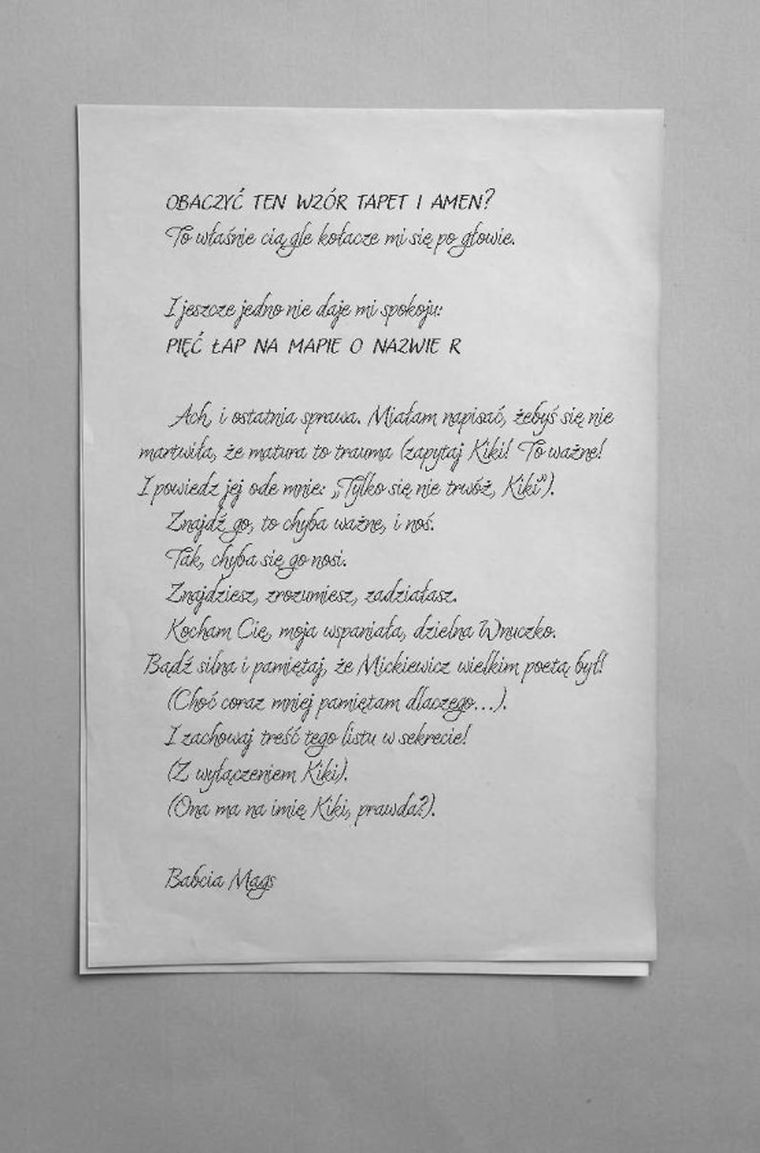 OBACZYĆ TEN WZÓR TAPET I AMEN?
To właśnie ciągle kołacze mi się po głowie.
I jeszcze jedno nie daje mi spokoju:
PIĘĆ ŁAP NA MAPIE O NAZWIE R
Ach, i ostatnia sprawa. Miałam napisać, żebyś się nie
martwiła, że matura to trauma (zapytaj Kiki! To ważne!
I powiedz jej ode mnie: „Tylko się nie trwóż, Kiki”).
Znajdź go, to chyba ważne, i noś.
Tak, chyba się go nosi.
Znajdziesz, zrozumiesz, zadziałasz.
Kocham Cię, moja wspaniała, dzielna Wnuczko.
Bądź silna i pamiętaj, że Mickiewicz wielkim poetą był!
(Choć coraz mniej pamiętam dlaczego...).
I zachowaj treść tego listu w sekrecie!
(Z wyłączeniem Kiki).
(Ona ma na imię Kiki, prawda?).
Babcia Mags